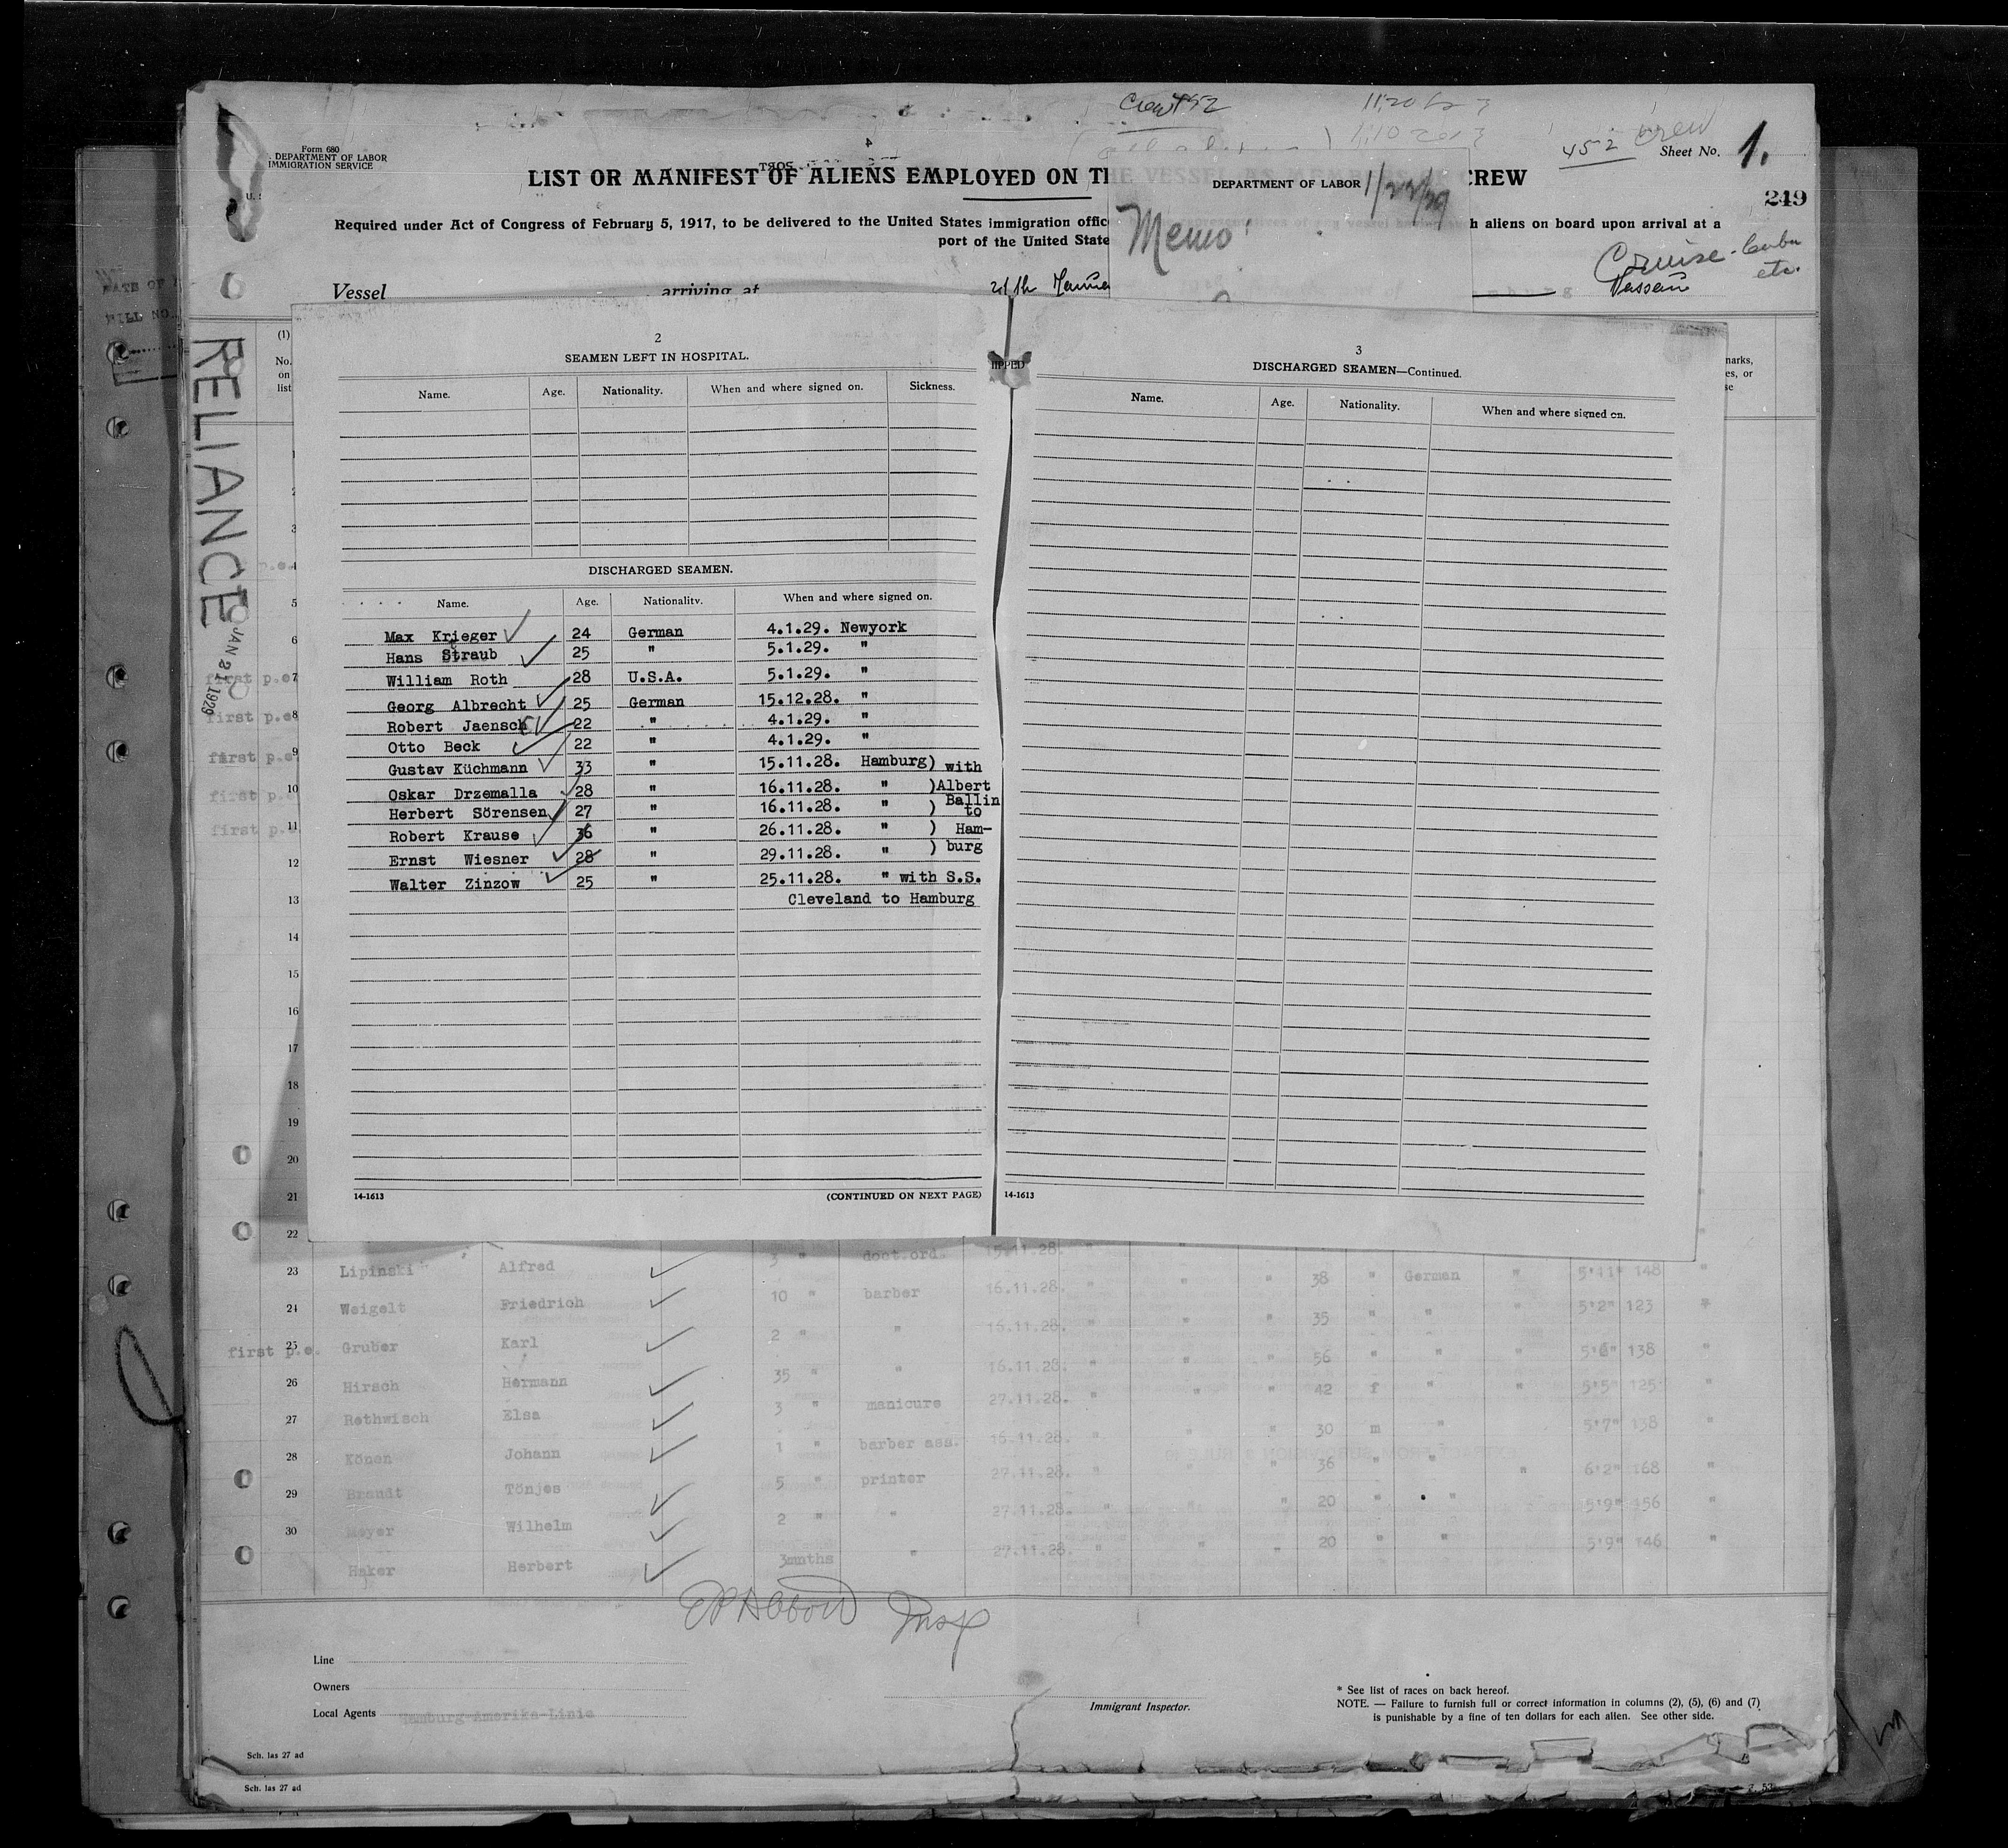 Crew 452
Form 680
DEPARTMENT OF LABOR
IMMIGRATION SERVICE
452 Crew
Sheet No. 1.
249
LIST OR MANIFEST OF ALIENS EMPLOYED ON TH CREW
DEPARTMENT OF LABOR 1/22/29
Memo
Required under Act of Congress of February 5, 1917, to be delivered to the United States immigration offic h aliens on board upon arrival at a
port of the United State
Cruise - Cuba
etc.
Nassau
Vessel arriving at
RELIANCE
JAN 21 1929
(1)
No.
on
list
2
SEAMEN LEFT IN HOSPITAL.
Name. Age. Nationality. When and where signed on. Sickness.
DISCHARGED SEAMEN.
Name. Age. Nationality. When and where signed on.
Max Krieger 24 German 4.1.29. Newyork
Hans Straub 25 " 5.1.29. "
William Roth 28 U.S.A. 5.1.29. "
Georg Albrecht 25 German 15.12.28. "
Robert Jaensch 22 " 4.1.29. "
Otto Beck 22 " 4.1.29. "
Gustav Küchmann 33 " 15.11.28. Hamburg) with
Oskar Drzemalla 28 " 16.11.28. " )Albert
Herbert Sörensen 27 " 16.11.28. " ) Ballin to
Robert Krause 36 " 26.11.28. " ) Ham-
Ernst Wiesner 28 " 29.11.28. " ) burg
Walter Zinzow 25 " 25.11.28. " with S.S.
Cleveland to Hamburg
14-1613 (CONTINUED ON NEXT PAGE)
3
DISCHARGED SEAMEN—Continued.
Name. Age. Nationality. When and where signed on.
14-1613
5
6
first p.e. 7
first p.e. 8
first p.e. 9
first p.e. 10
first p. 11
12
13
14
15
16
17
18
19
20
21
22
3 " doct.ord. 15.11.28. "
23 Lipinski Alfred 10 " barber 16.11.28. " " " 38 " German " 5'11" 148 "
24 Weigelt Friedrich 2 " " 16.11.28. " " " 35 " " " 5'2" 123 "
first p.e. 25 Gruber Karl 35 " " 16.11.28. " " " 56 " " " 5'6" 138 "
26 Hirsch Hermann 3 " manicure 27.11.28. " " " 42 f " " 5'5" 125 "
27 Rethwisch Elsa 1 " barber ass. 16.11.28. " " " 30 m " 5'7" 138 "
28 Könen Johann 5 " printer 27.11.28. " " " 36 " " " 6'2" 168 "
29 Brandt Tönjes 2 " " 27.11.28. " " " 20 " " 5'9" 156 "
30 Meyer Wilhelm 3mnths " 27.11.28. " " " 20 " " 5'9" 146 "
Haker Herbert
Insp
Line
Owners
Local Agents Hamburg-Amerika-Linie
Immigrant Inspector.
* See list of races on back hereof.
NOTE. — Failure to furnish full or correct information in columns (2), (5), (6) and (7)
is punishable by a fine of ten dollars for each alien. See other side.
Sch. las 27 ad
Sch. las 27 ad